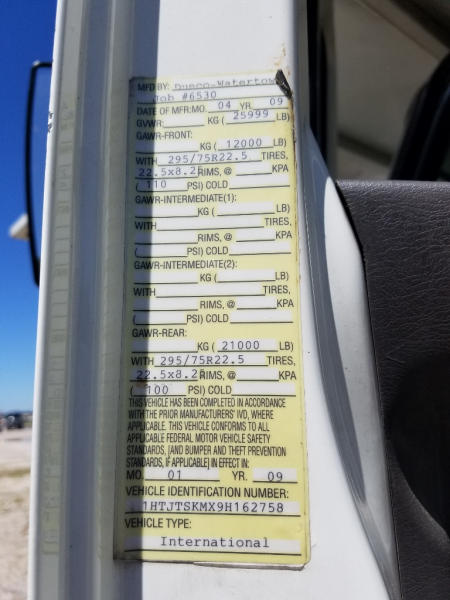 MFD BY: Dueco-Watertow
Job #6530
DATE OF MFR: MO. 04 YR. 09
GVWR: KG ( 25999 LB)
GAWR-FRONT:
KG ( 12000 LB)
WITH 295/75R22.5 TIRES,
22.5x8.2 RIMS, @ KPA
( 110 PSI) COLD
GAWR-INTERMEDIATE(1):
KG ( LB)
WITH TIRES,
RIMS, @ KPA
( PSI) COLD
GAWR-INTERMEDIATE(2):
KG ( LB)
WITH TIRES,
RIMS, @ KPA
( PSI) COLD
GAWR-REAR:
KG ( 21000 LB)
WITH 295/75R22.5 TIRES,
22.5x8.2 RIMS, @ KPA
( 100 PSI) COLD
THIS VEHICLE HAS BEEN COMPLETED IN ACCORDANCE
WITH THE PRIOR MANUFACTURERS' IVD, WHERE
APPLICABLE. THIS VEHICLE CONFORMS TO ALL
APPLICABLE FEDERAL MOTOR VEHICLE SAFETY
STANDARDS, [AND BUMPER AND THEFT PREVENTION
STANDARDS, IF APPLICABLE] IN EFFECT IN:
MO. 01 YR. 09
VEHICLE IDENTIFICATION NUMBER:
1HTJTSKMX9H162758
VEHICLE TYPE:
International